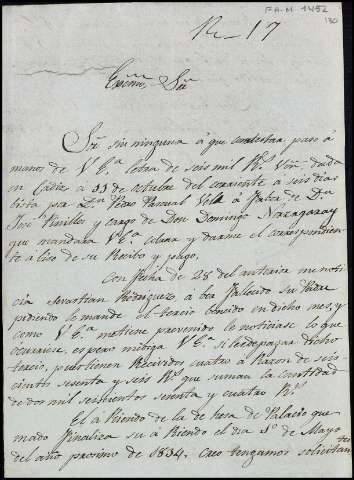 FA-M 1452
R - 17
Excmo. Sr.
Sr. sin ninguna á que contestar paso á
manos de V Eª letra de seis mil Rs Von dada
en Cádiz á 11 de octubre del corriente á seis dias
bista por Dn Pedro Pascual Vela á favor de Dn
José Pinillos y cargo de Don Domingo Nazagaray
que mandara V Eª cobrar y darme el correspondien-
te abiso de su Recibo y pago.
Con fecha de 28 del anterior me noti-
cia Sevastian Rodriguez, á ber fallecido su Padre
pidiendo le mande el tercio bencido en dicho mes, y
como V Eª me tiene prevenido le noticiase lo que
ocurriese, espero me diga V Eª si he de pagar dicho
tercio, pues tienen Recividos cuatro á Razon de seis-
cientos sesenta y seis Rs que suman la cantidad
de dos mil seiscientos sesenta y cuatro Rs.
El á Riendo de la de hesa de Palacio que-
mado finaliza su á Riendo el dia 1º de Mayo
del año procsimo de 1834. Creo tengamos solicitan-
tes